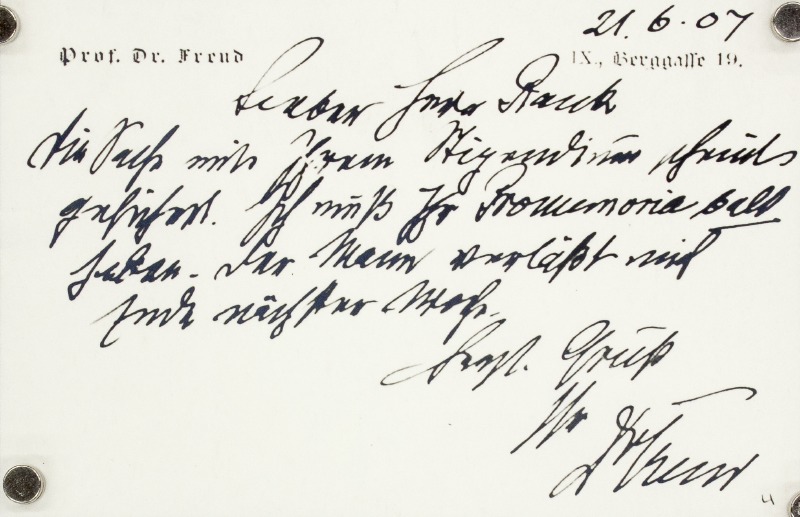 21.6.07
Prof. Dr. Freud
IX., Berggasse 19.
Lieber Herr Rank
Die Sache mit Ihrem Stipendium scheint
gesichert. Ich muß Ihr Promemoria bald
haben. Der Mann verläßt mich
Ende nächster Woche.
Herzl. Gruß
Ihr
Dr Freud
4